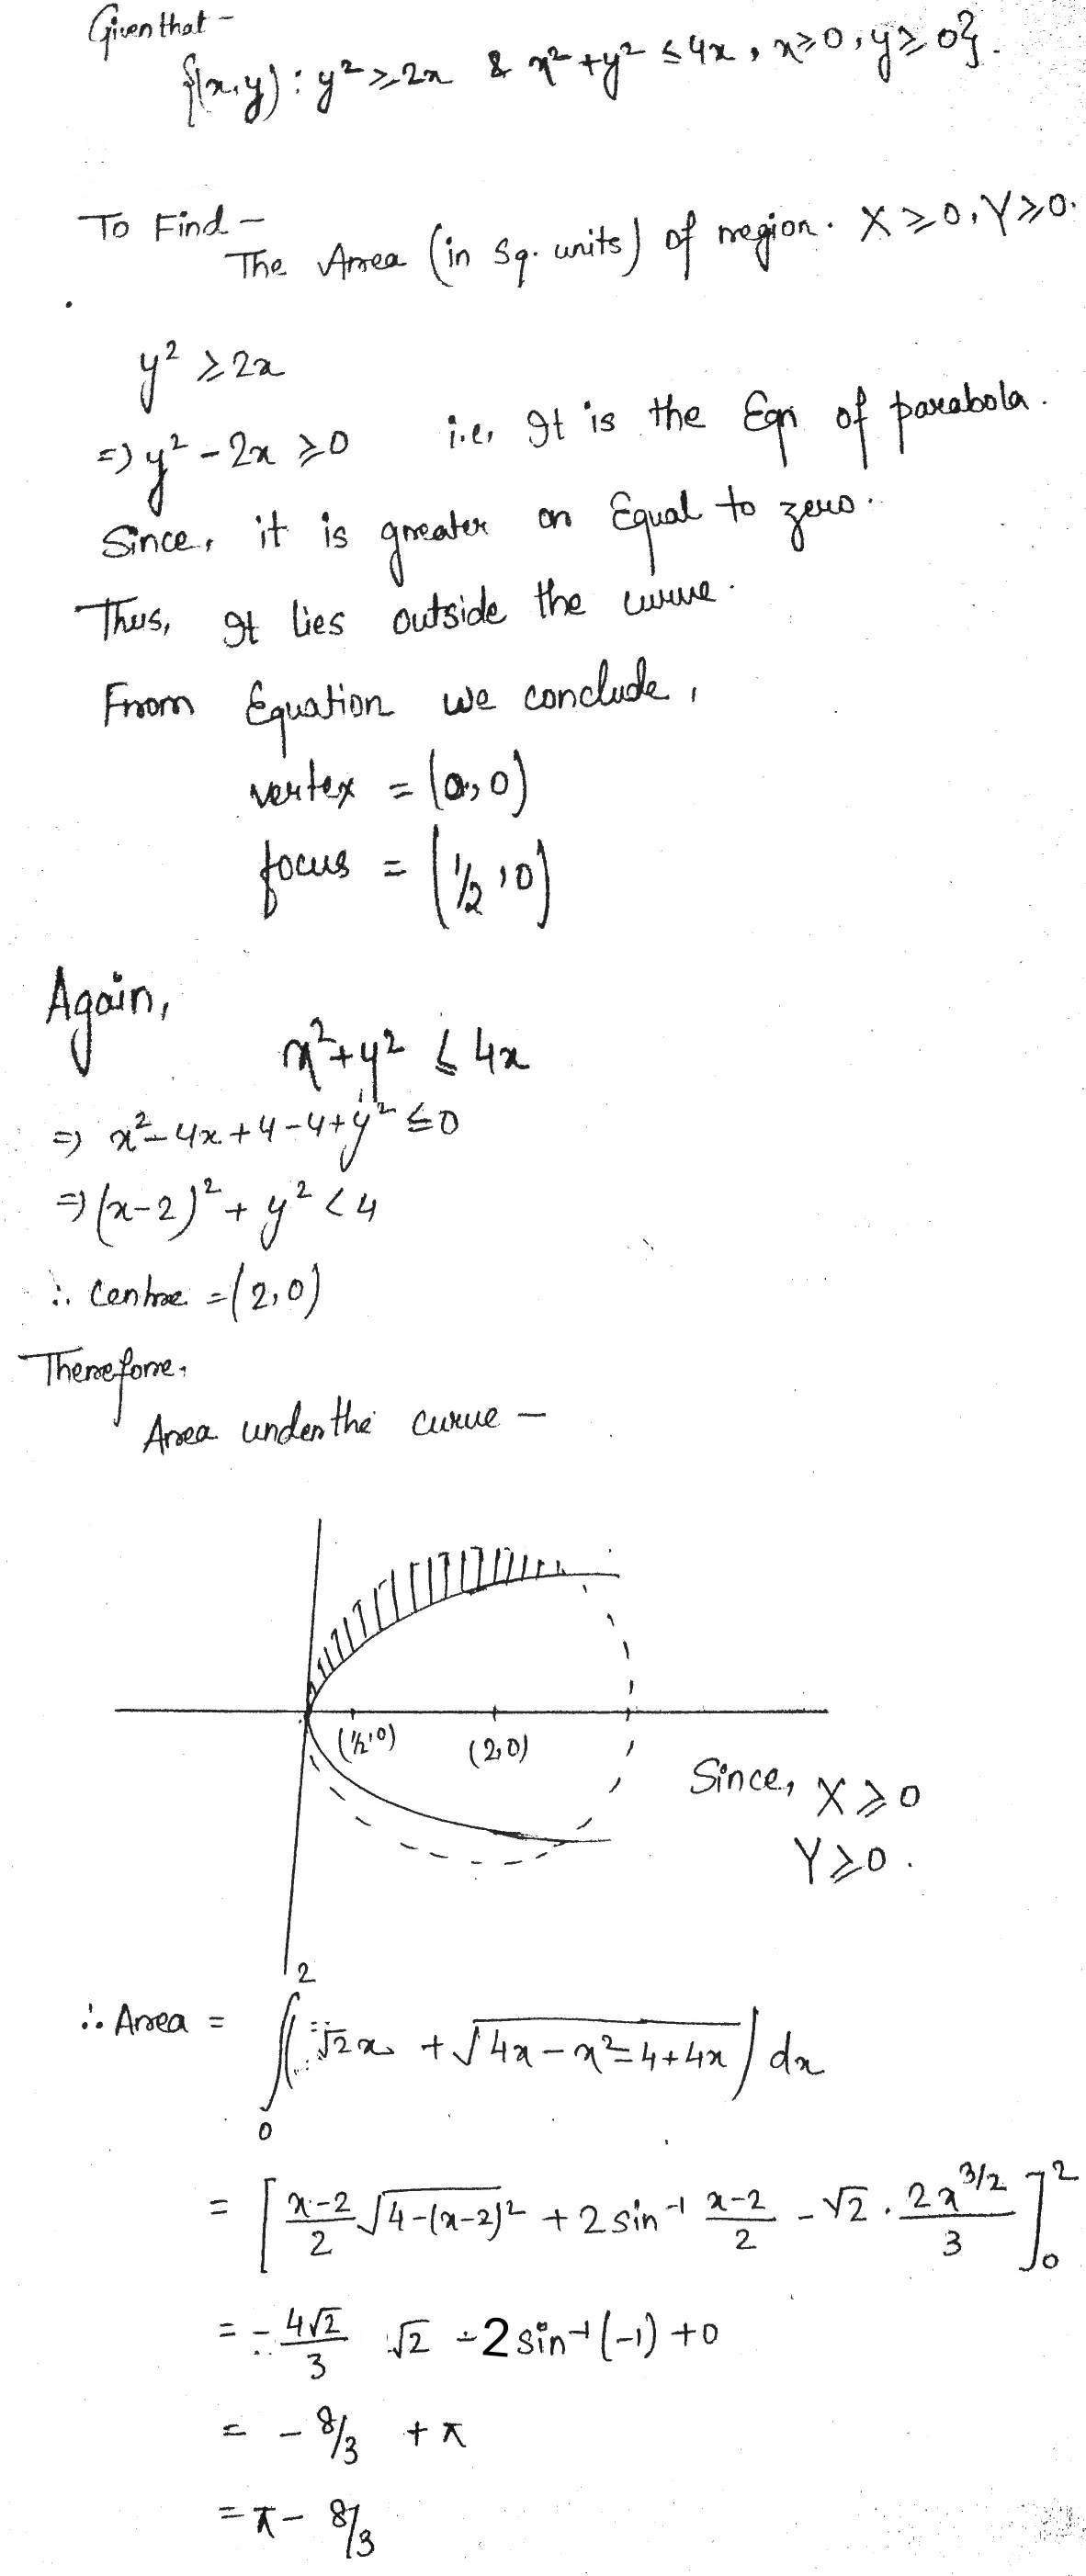 Given that -
{(x,y) : y² ≥ 2x & x² + y² ≤ 4x, x ≥ 0, y ≥ 0}.
To Find -
The Area (in Sq. units) of region. X ≥ 0, Y ≥ 0.
y² ≥ 2x
⇒ y² - 2x ≥ 0 i.e, It is the Eqn of parabola.
Since, it is greater or Equal to zero.
Thus, It lies outside the curve.
From Equation we conclude,
vertex = (0,0)
focus = (1/2, 0)
Again,
x² + y² ≤ 4x
⇒ x² - 4x + 4 - 4 + y² ≤ 0
⇒ (x-2)² + y² < 4
∴ Centre = (2,0)
Therefore,
Area under the curve -
(1/2,0) (2,0)
Since, X ≥ 0
Y ≥ 0.
∴ Area = ∫₀² ( √2x + √(4x - x² = 4 + 4x) ) dx
= [ (x-2)/2 √(4-(x-2)²) + 2 sin⁻¹ (x-2)/2 - √2 . 2x^(3/2)/3 ]₀²
= - 4√2/3 √2 - 2 sin⁻¹(-1) + 0
= - 8/3 + π
= π - 8/3